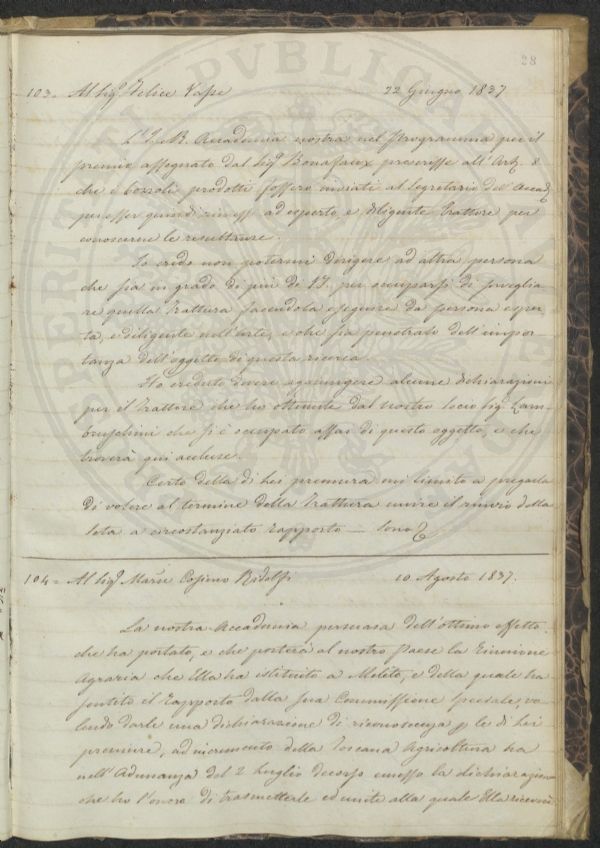 28
103= Al Sig.r Felice Vasse 22 Giugno 1837
L'I. e R. Accademia nostra nel Programma per il
premio assegnato dal Sig.r Bonafoux prescrisse all'Art. 8
che i bozzoli prodotti fossero inviati al Segretario dell'Accad.
per esser quindi ad esperto, e diligente trattore per
conoscerne le resultanze.
Io credo non potermi dirigere ad altra persona
che sia in grado di più di V.S. per occuparsi di sorveglia
re questa trattura facendola eseguire da persona esper
ta, e diligente nell'arte, e che sia penetrato dell'impor
tanza dell'oggetto di questa ricerca.
Ho creduto dovere aggiungere alcune dichiarazioni
per il trattore che ho ottenute dal nostro socio Sig.r Lam
bruschini che si è occupato assai di questo oggetto, e che
troverà qui accluse.
Certo della di Lei premura mi limito a pregarla
di volere al termine della trattura unire il rinvio della
seta a circostanziato rapporto — Sono &
104= Al Sig.r March Cosimo Ridolfi 10 Agosto 1837.
La nostra Accademia persuasa dell'ottimo effetto
che ha portato, e che porterà al nostro paese la Riunione
Agraria che Ella ha istituito a Meleto, e della quale ha
sentito il rapporto dalla sua Commissione speciale, vo
lendo darle una dichiarazione di riconoscenza p. le di Lei
premure, ad incremento della Toscana Agricoltura ha
nell'Adunanza del 2 Luglio decorso emesso la dichiarazione
che ho l'onore di trasmetterle ed unita alla quale Ella riceverà